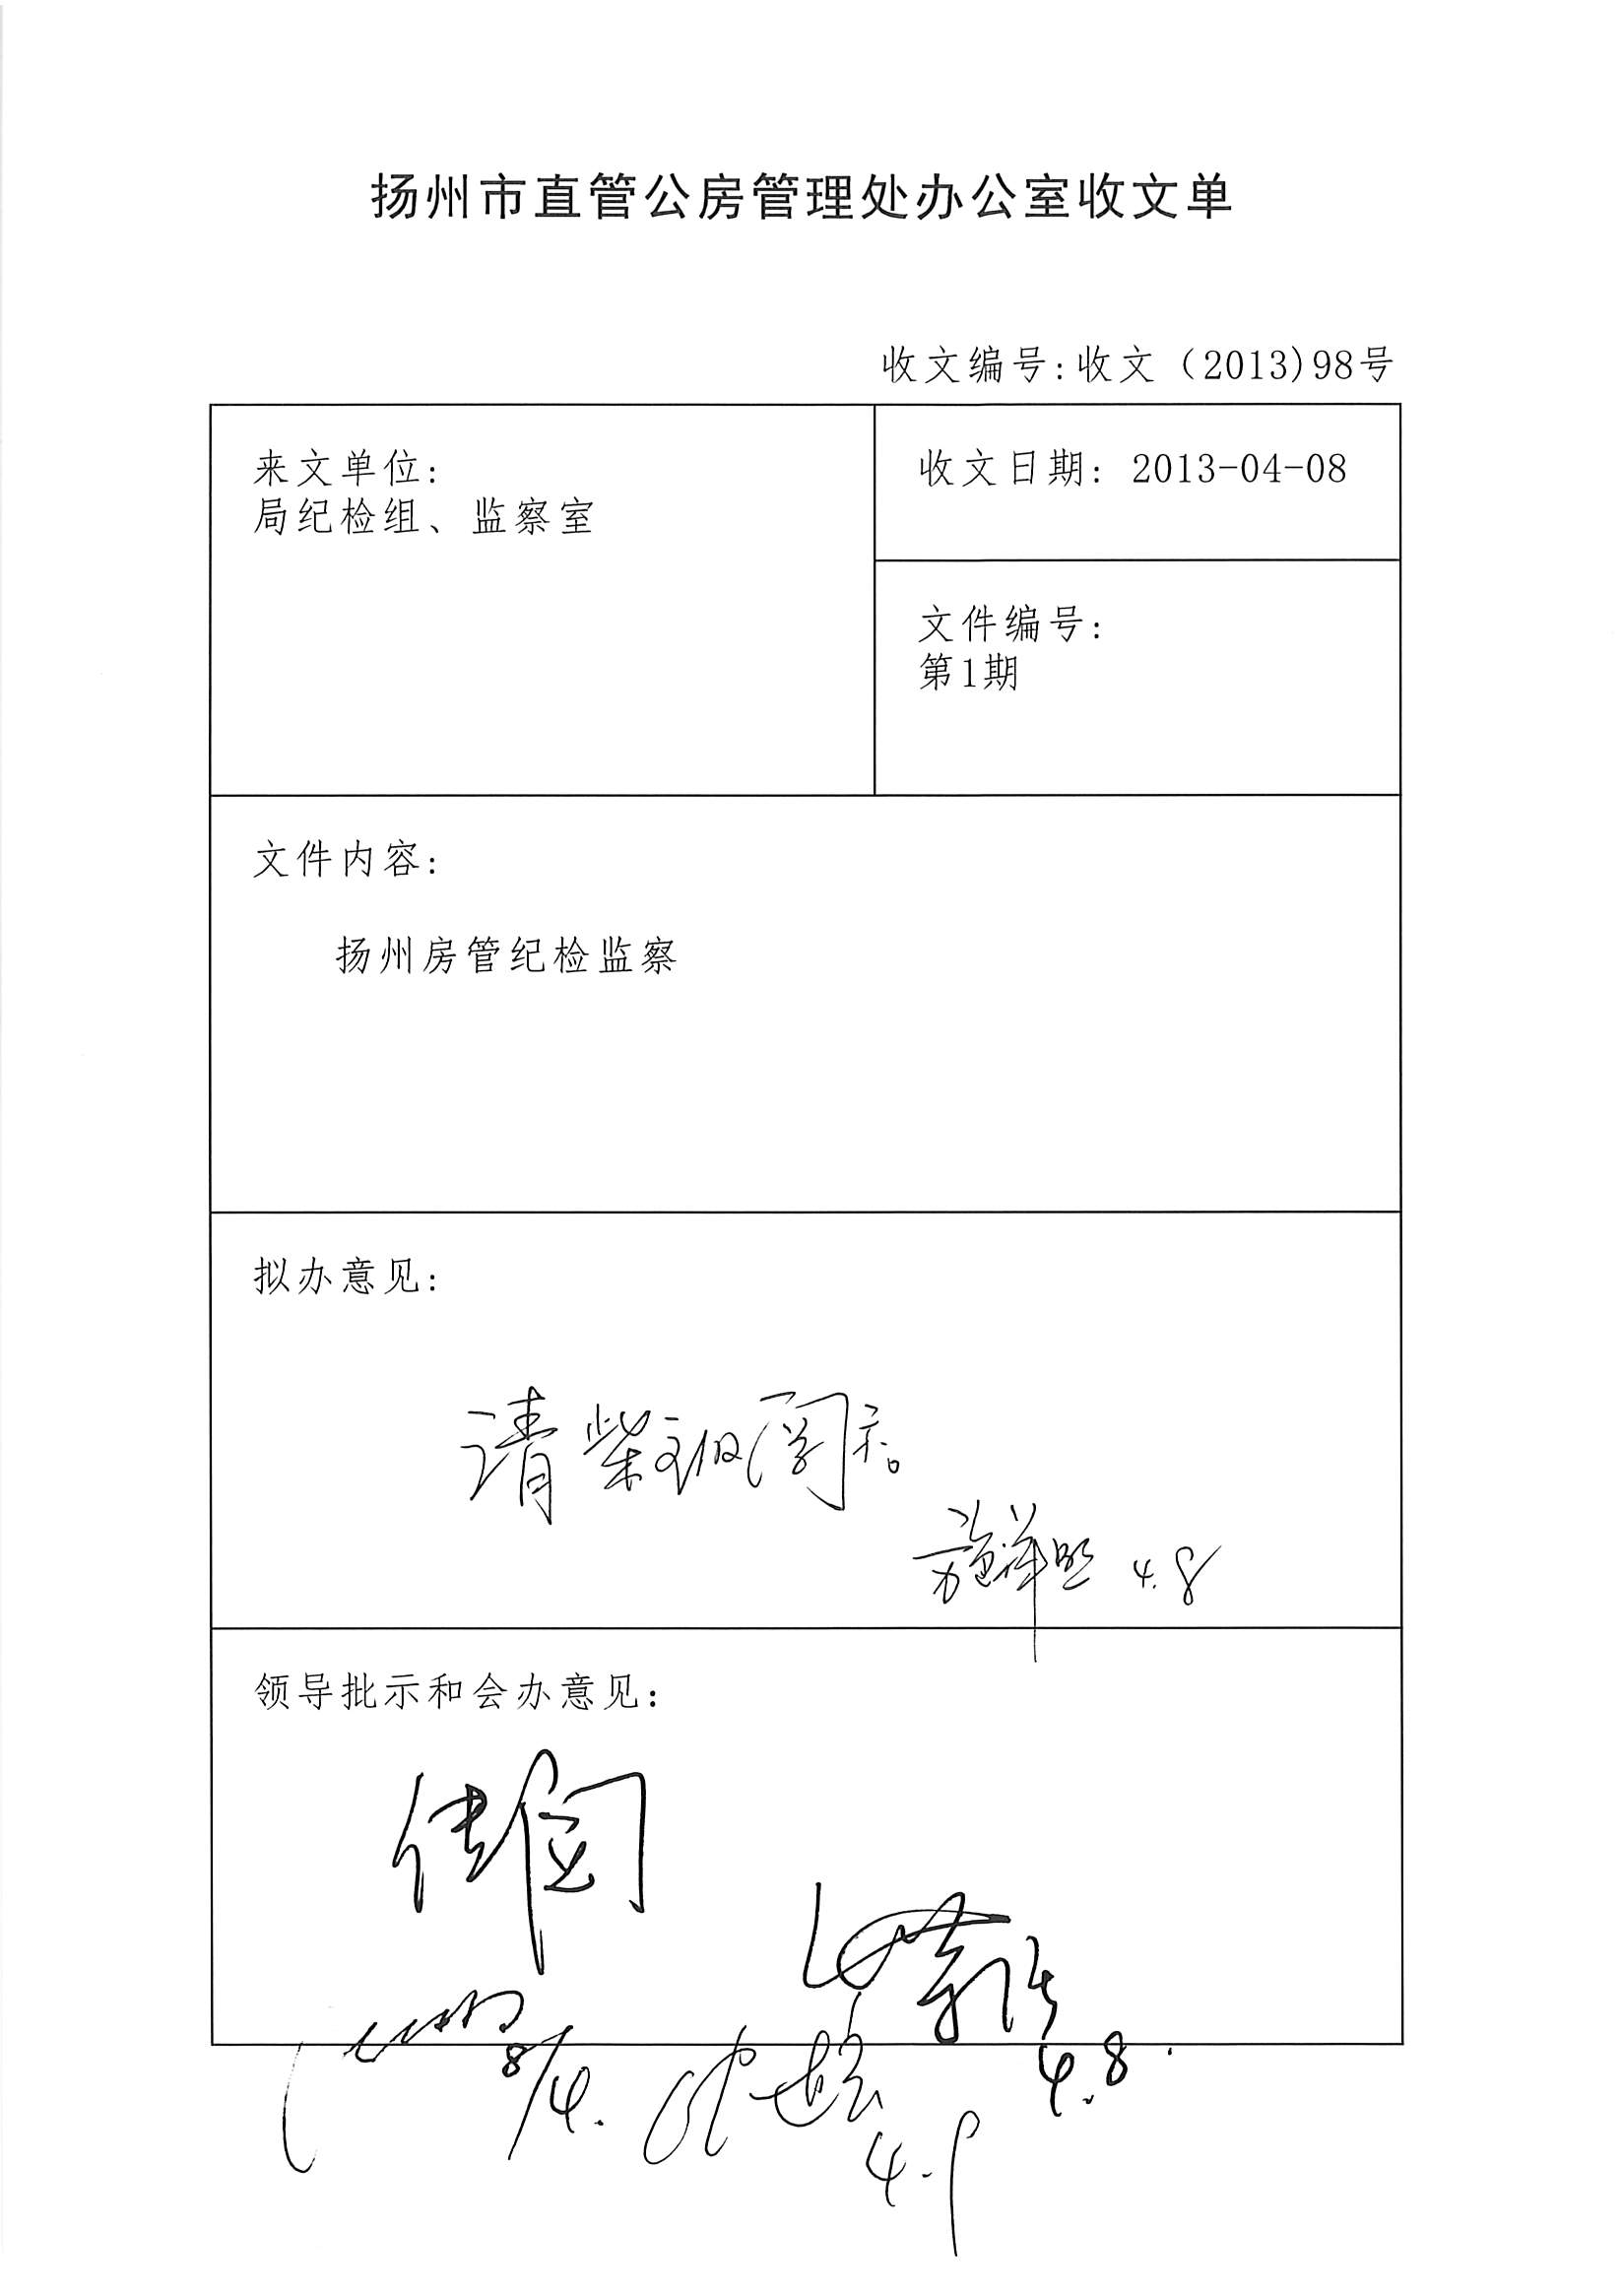 扬州市直管公房管理处办公室收文单
收文编号:收文（2013)98号
来文单位:
局纪检组、监察室
收文日期: 2013-04-08
文件编号:
第1期
文件内容:
扬州房管纪检监察
拟办意见:
请柴主阅示。
4.8
领导批示和会办意见:
传阅
8/4.
4.8.
4.9